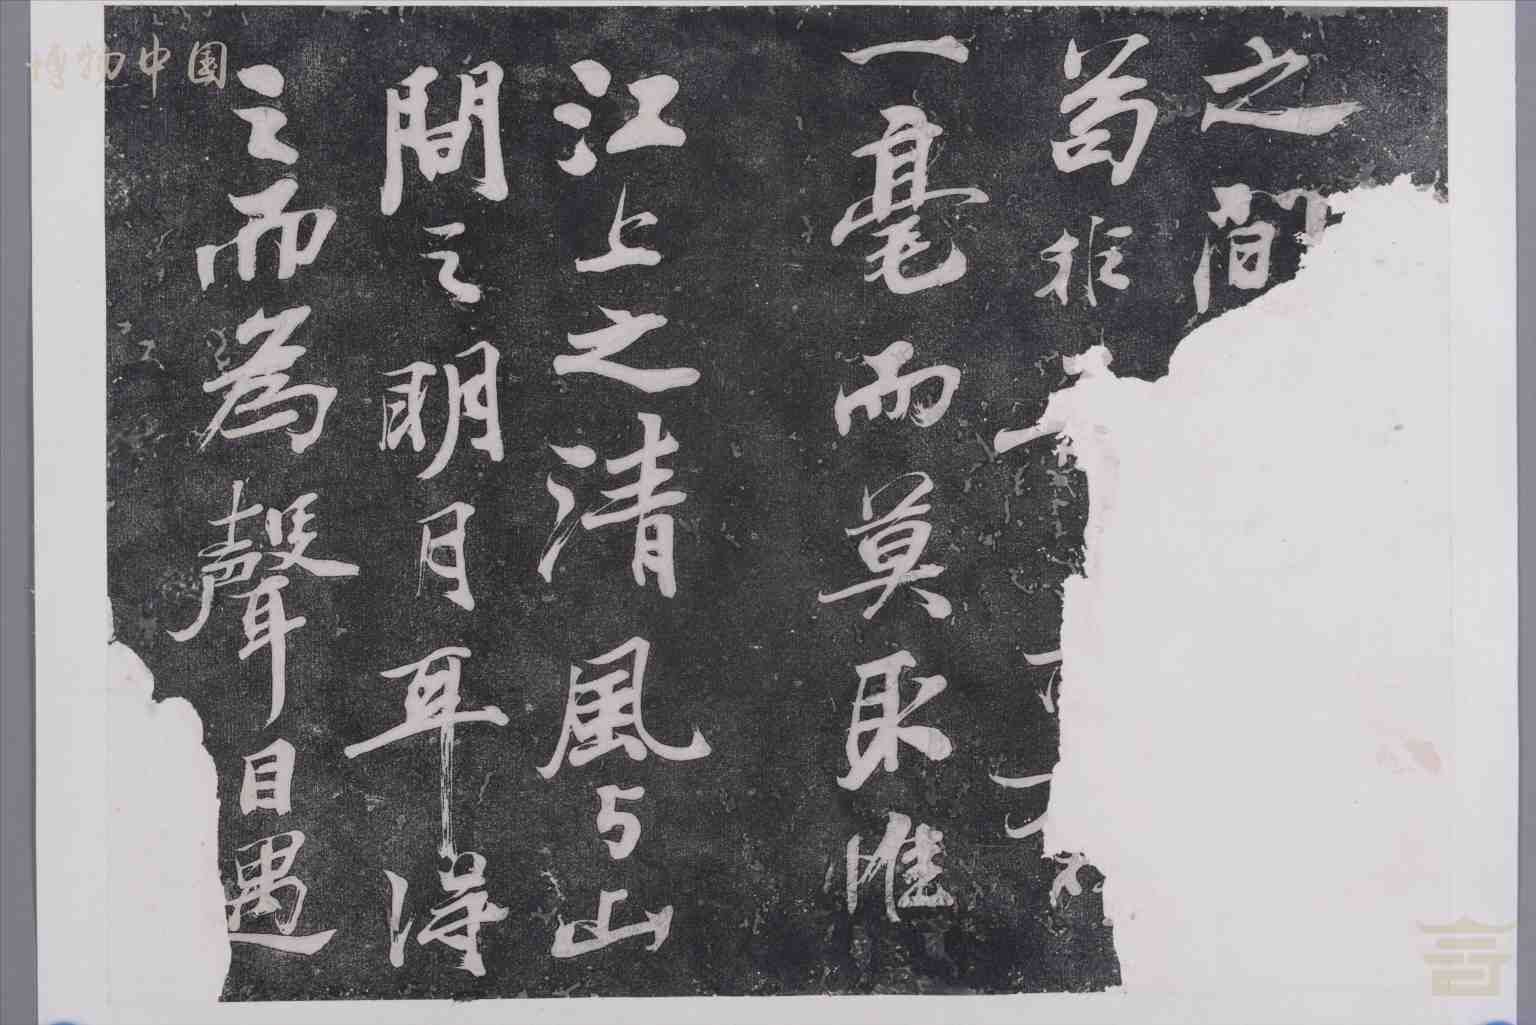 之間
苟非
一毫而莫取惟
江上之清風与山
間之明月耳得
之而為聲目遇
博物中国